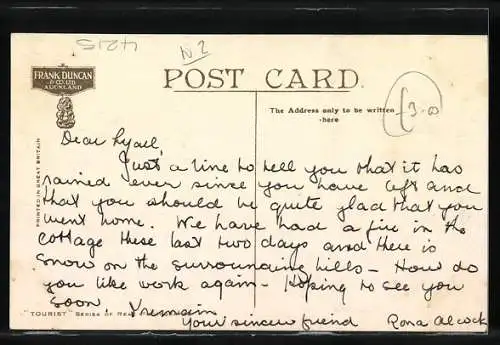 4215
N2
FRANK DUNCAN
& CO. LTD
AUCKLAND
POST CARD.
The Address only to be written
here
£3-00
PRINTED IN GREAT BRITAIN
Dear Lyall,
Just a line to tell you that it has
rained ever since you have left and
that you should be quite glad that you
went home. We have had a fire in the
cottage these last two days and there is
snow on the surrounding hills - How do
you like work again - Hoping to see you
soon, I remain
"TOURIST" SERIES OF REA
Your sincere friend Rona Alcock